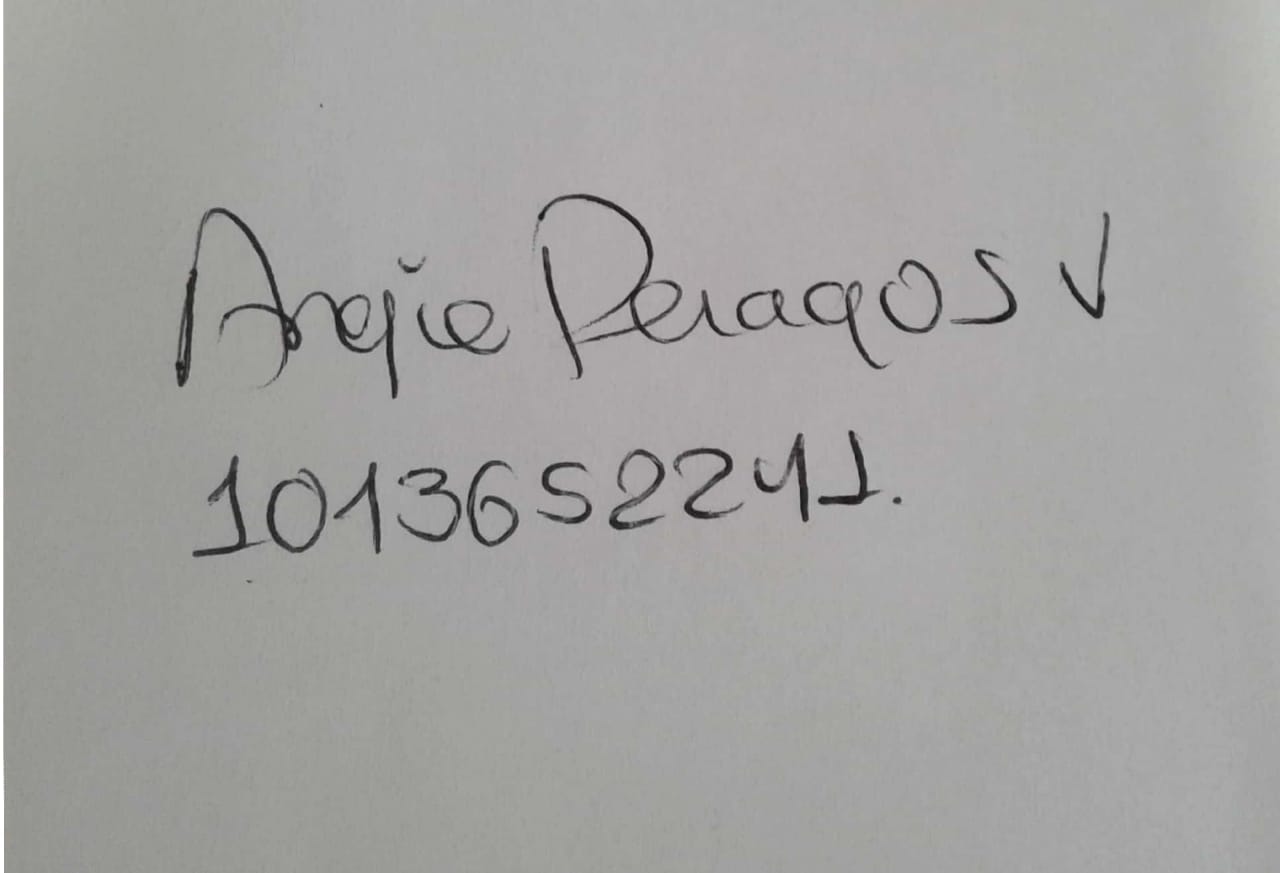 Angie Penagos V
1013652241.